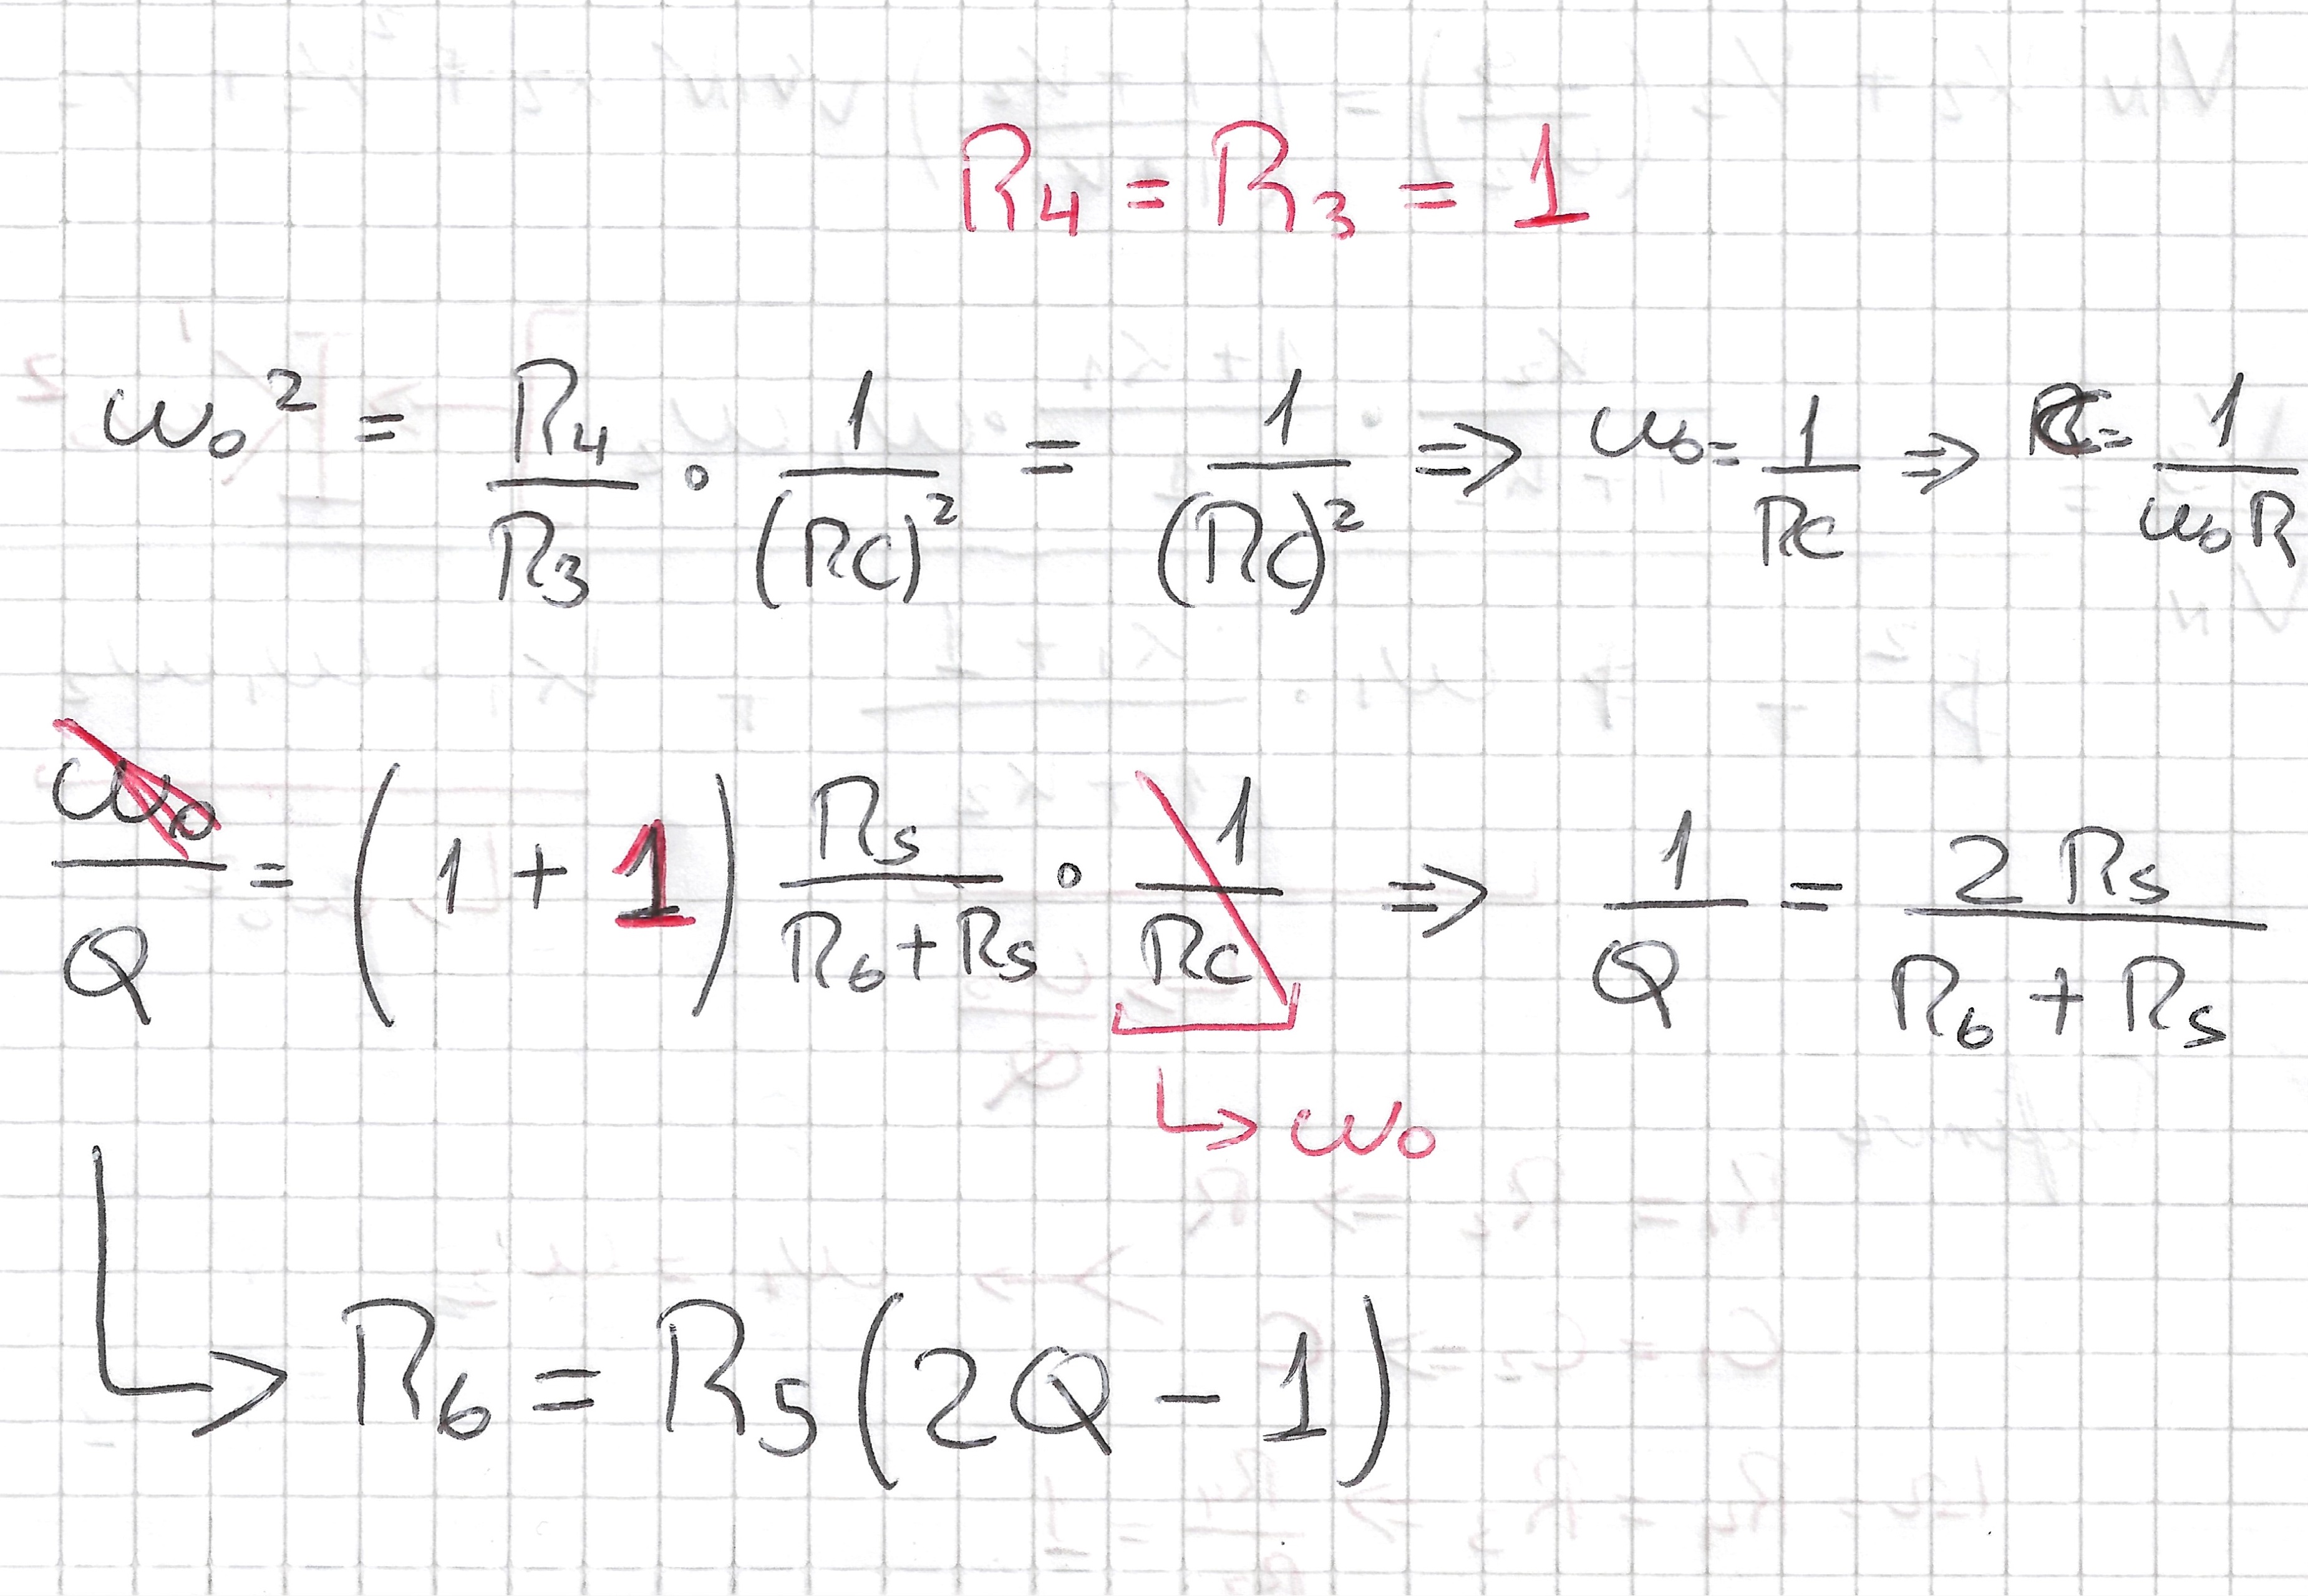 R4 = R3 = 1
ω0² = R4/R3 · 1/(RC)² = 1/(RC)² ⇒ ω0 = 1/RC ⇒ C = 1/ω0R
ω0/Q = (1 + 1) R5/(R6+R5) · 1/RC ⇒ 1/Q = 2 R5/(R6 + R5)
↳ ω0
↳ R6 = R5(2Q - 1)